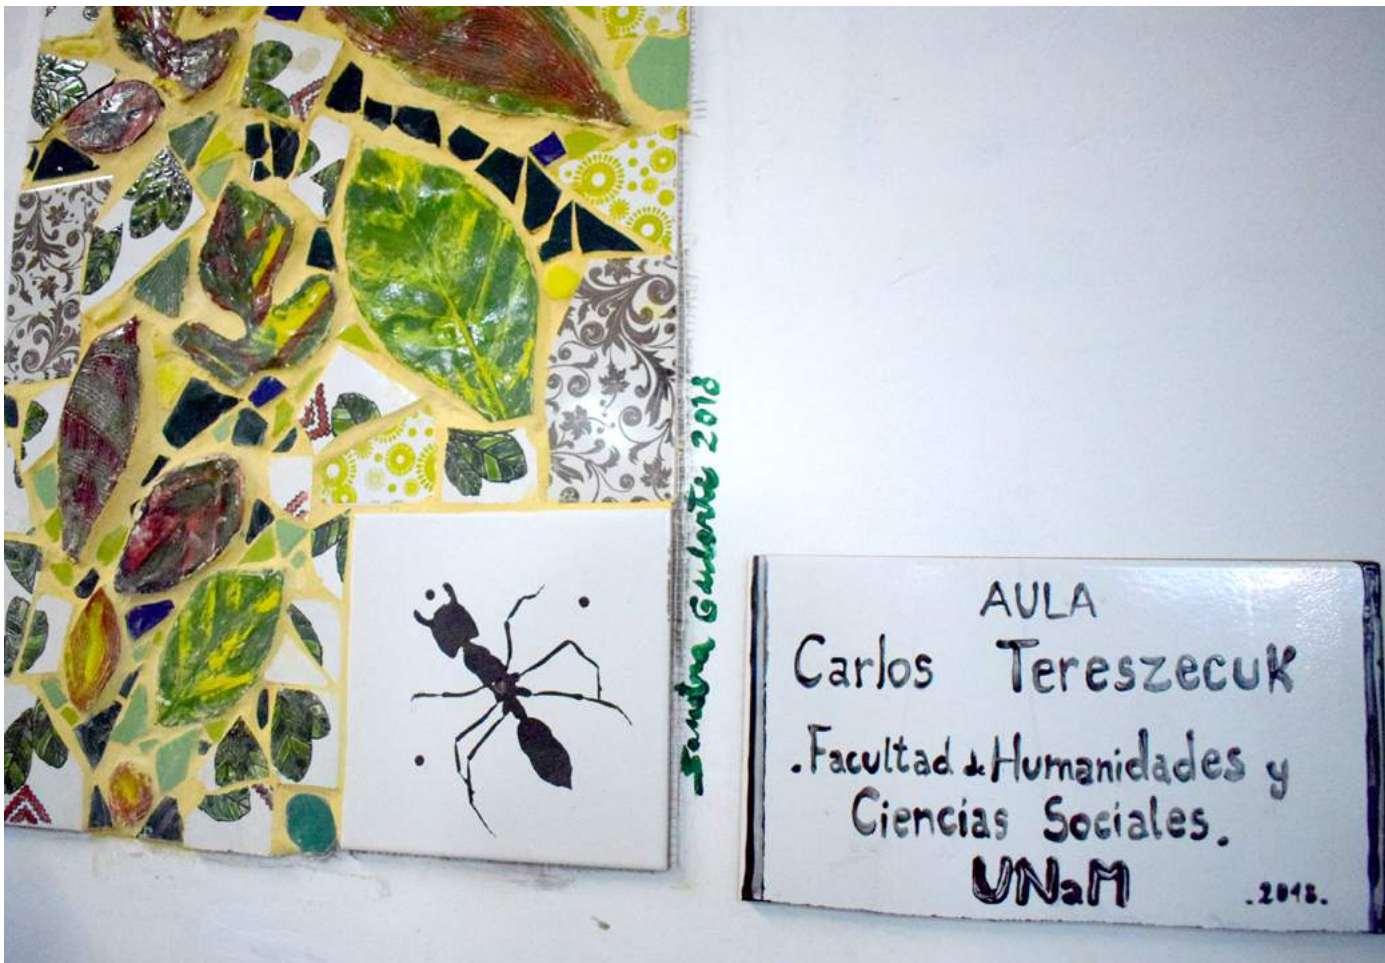 Sandra Gularte 2018
AULA
Carlos Tereszecuk
.Facultad de Humanidades y
Ciencias Sociales.
UNaM
.2018.